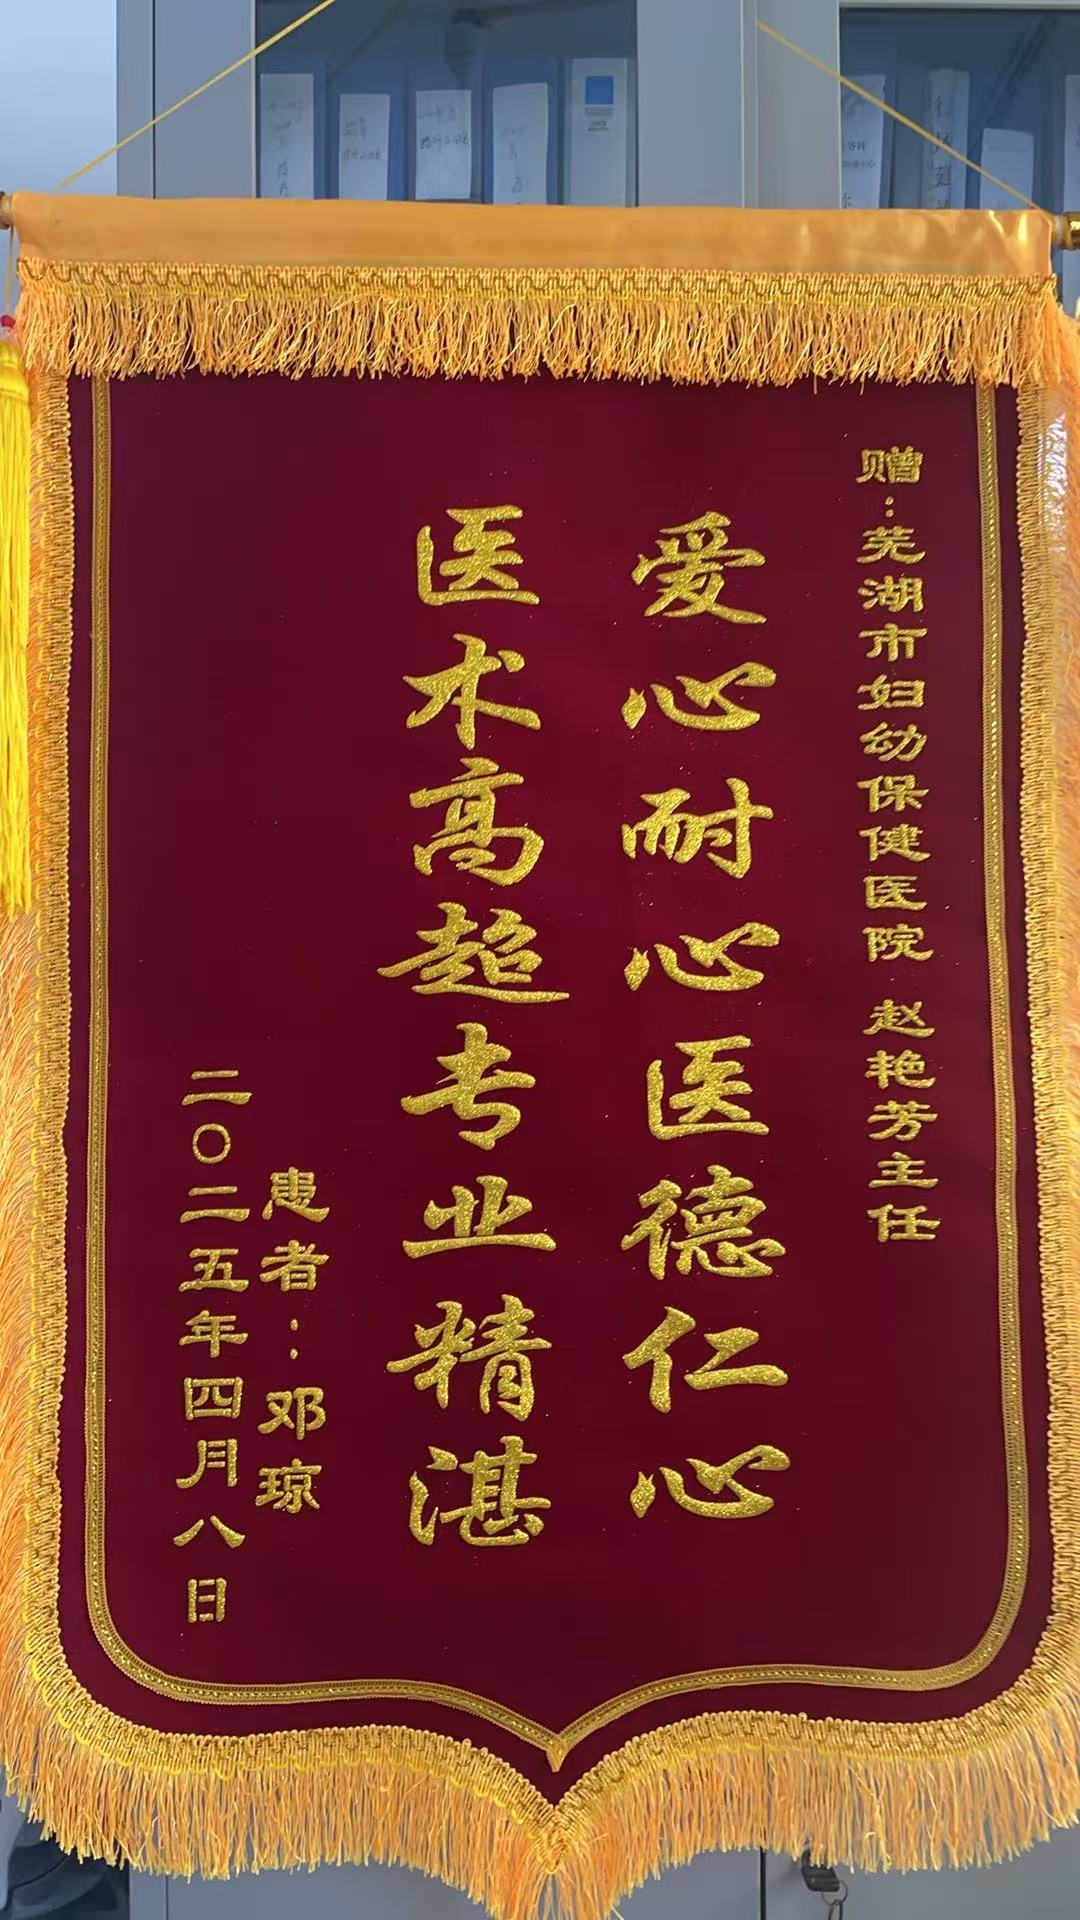 赠：芜湖市妇幼保健医院 赵艳芳主任
爱心耐心医德仁心
医术高超专业精湛
患者：邓琼
二〇二五年四月八日